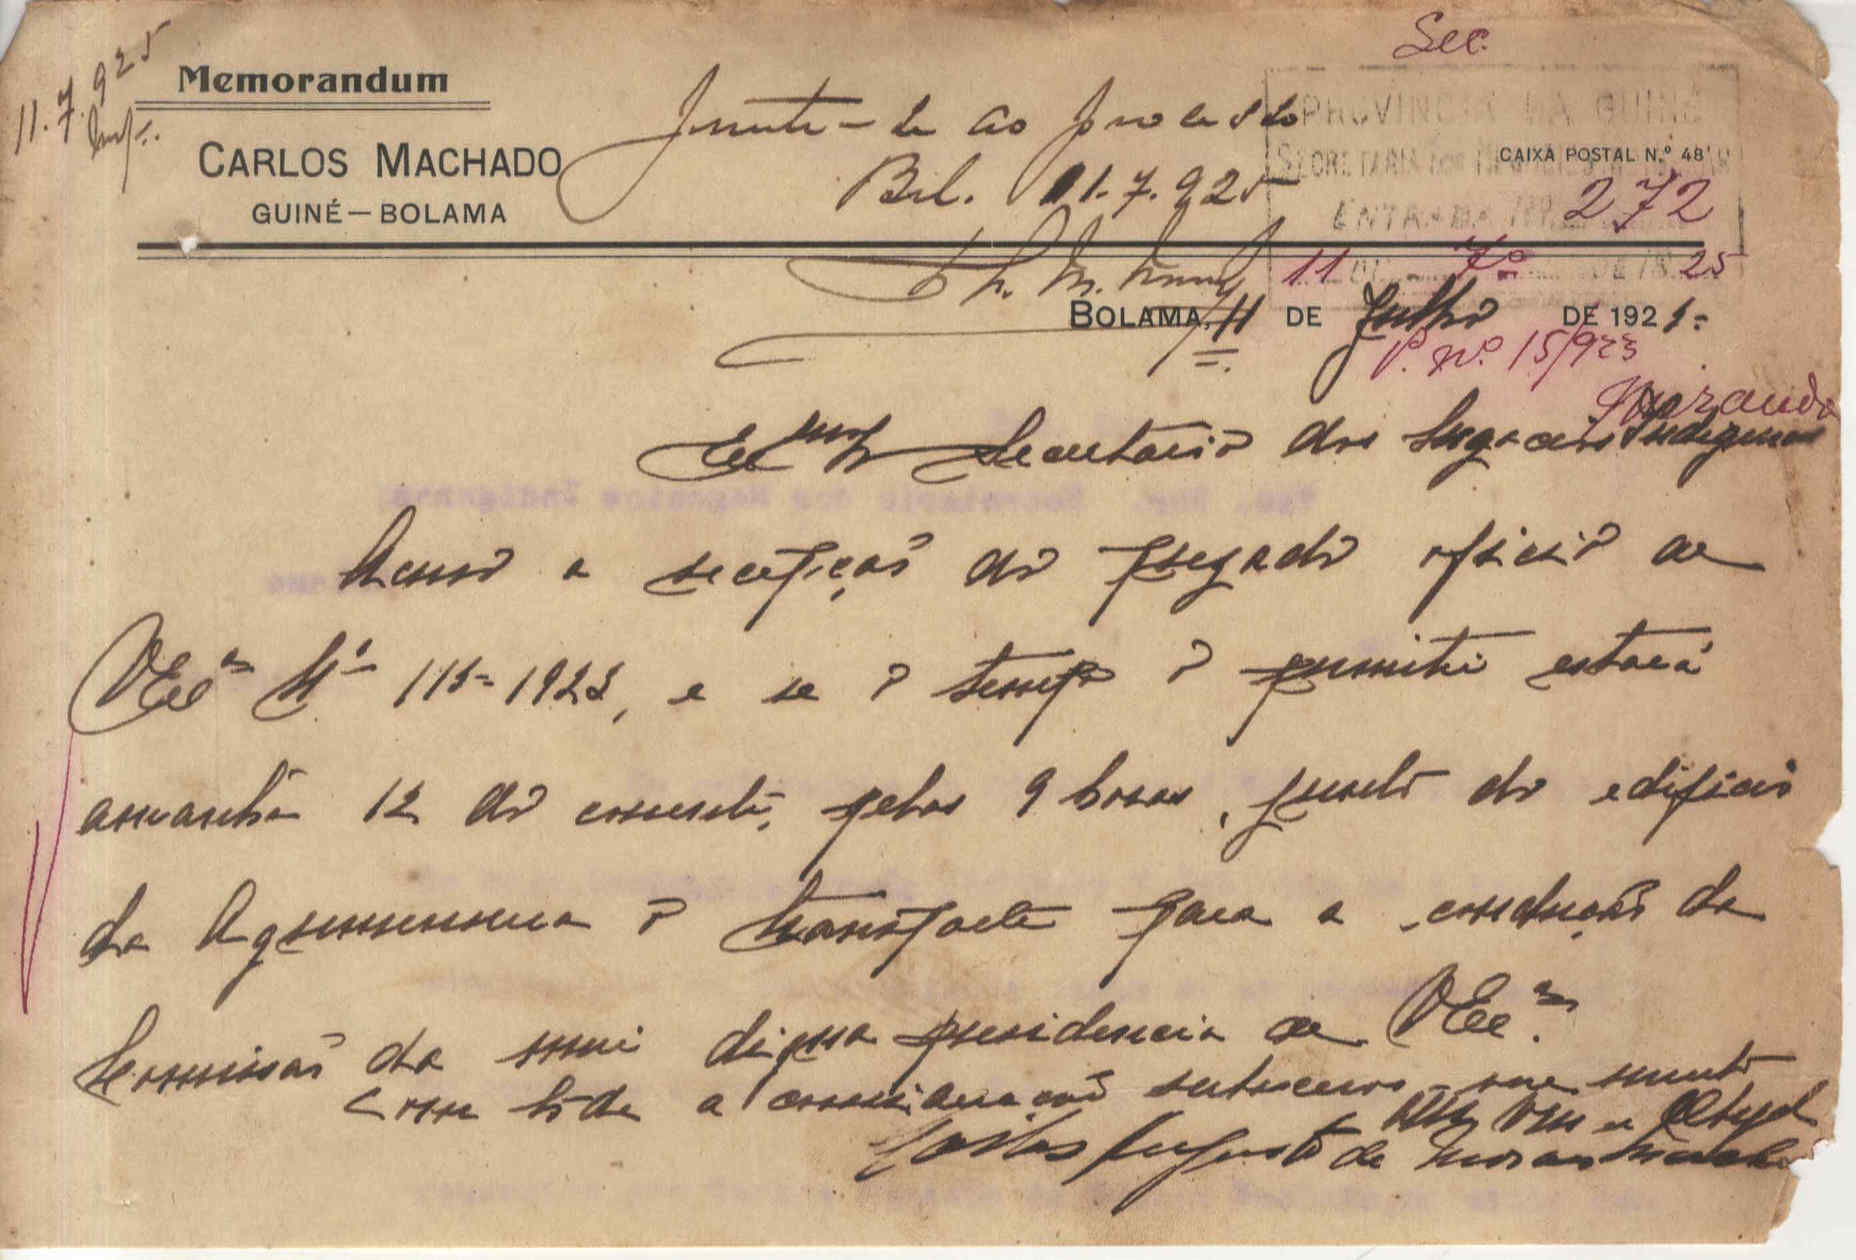 Sec.
11.7.925
Memorandum
CARLOS MACHADO
GUINÉ — BOLAMA
Junte-se ao processo
Bol. 11.7.925
PROVINCIA DA GUINÉ
CAIXA POSTAL N.º 48
SECRETARIA DOS NEGOCIOS
ENTRADA 272
11 7º 25
BOLAMA, 11 DE Julho DE 1925-
P. nº 15/923
Exmº Secretario dos Negocios Indigenas
Acuso a recepção do prezado oficio de
VExª Nº 115-1925, e se o tempo o permitir estará
amanhã 12 do corrente, pelas 9 horas, junto do edificio
da Agrimensura o transporte para a condução da
Comissão da mui digna presidencia de VExª.
Com toda a consideração subscrevo-me muito
Carlos Augusto de Morais Machado